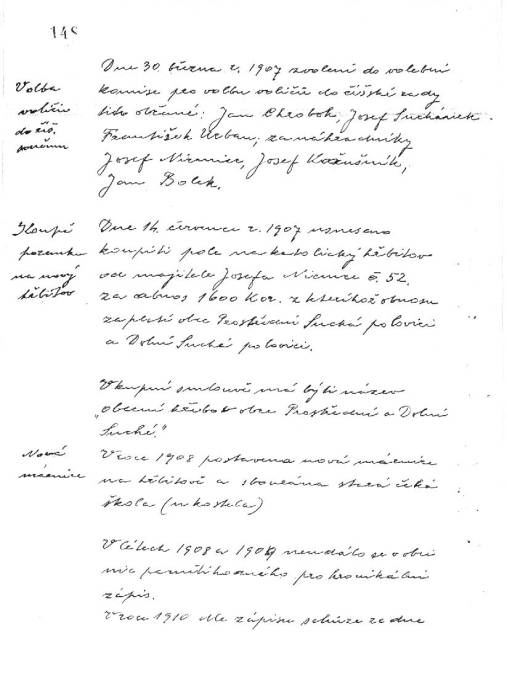 148
Dne 30. března r. 1907 zvoleni do volební
Volba
voličů
do říš.
komise pro volbu voličů do říšské rady
tito občané: Jan Chrobok, Josef Sucháněk
František Urban; za náhradníky
Josef Niemiec, Josef Kožušník,
Jan Bolek.
Koupě
pozemku
na nový
hřbitov
Dne 14. července r. 1907 usneseno
koupiti pole na katolický hřbitov
od majitele Josefa Niemce č. 52.
za obnos 1600 Kor. z kteréhož obnosu
zaplatí obec Prostřední Suchá polovici
a Dolní Suchá polovici.
V kupní smlouvě má býti název
„obecní hřbitov obce Prostřední a Dolní
Suché."
Nová
márnice
V roce 1908 postavena nová márnice
na hřbitově a zbourána stará
škola (u kostela)
V létech 1908 a 1909 neudálo se v obci
nic pamětihodného pro kronikální
zápis.
V roce 1910 dle zápisu schůze ze dne